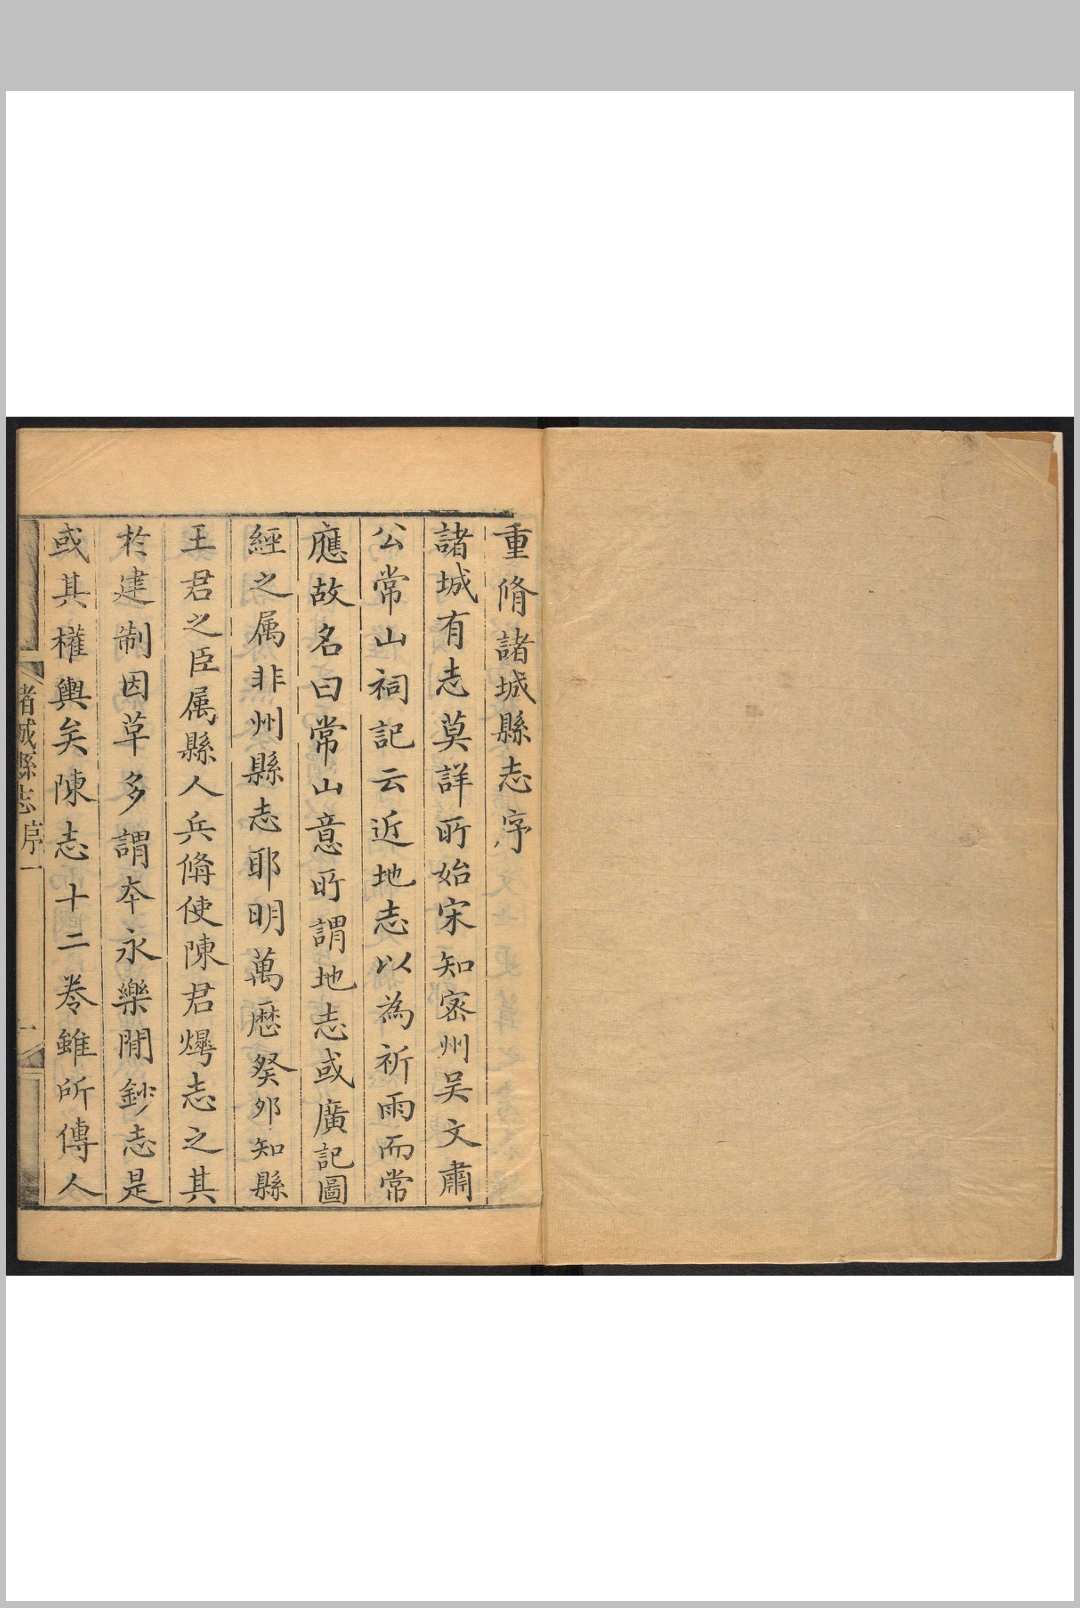 重脩諸城縣志序
諸城有志莫詳所始宋知密州吴文肅
公常山祠記云近地志以為祈雨而常
應故名曰常山意所謂地志或廣記圖
經之属非州縣志耶明萬曆癸夘知縣
王君之臣属縣人兵偹使陳君燁志之其
於建制因革多謂夲永樂閒鈔志是
或其權輿矣陳志十二卷雖所傳人
諸城縣志序一